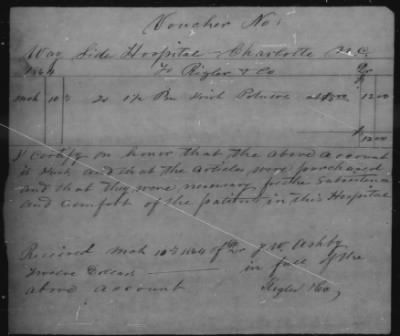 Voucher No 1
Way Side Hospital Charlotte N.C.
1864 To Rigler & Co Dr
Mch 10th To 1½ Bu Irish Potatoes at $8.00 $ 12 00
$ 12 00
I certify on honor that the above account
is Just, and that the articles were purchased
and that they were necessary for the Subsistence
and comfort of the patients in this Hospital
Received Mch 10th 1864 of Dr J W Ashby
Twelve Dollars in full of the
above account Rigler & Co